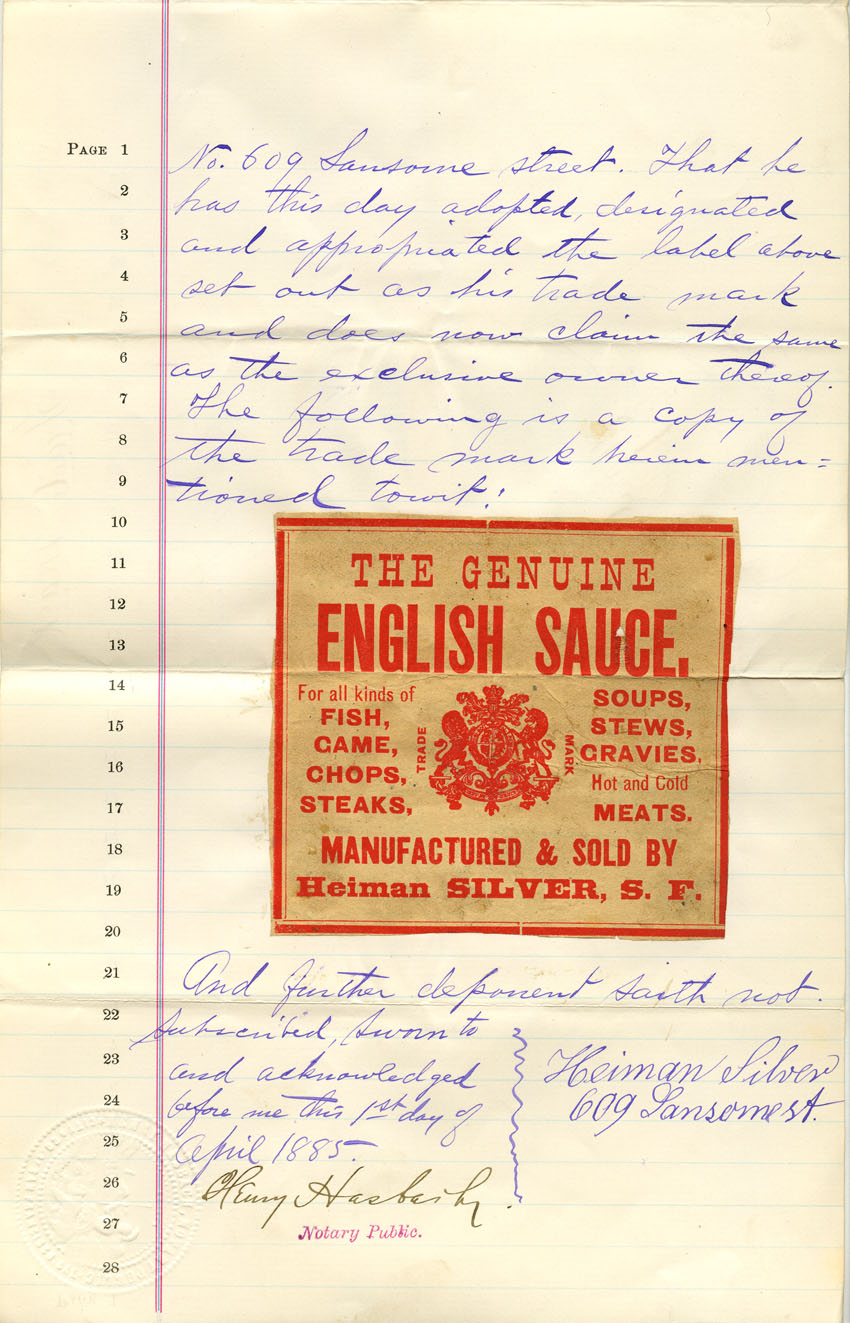 PAGE 1
No. 609 Sansome street. That he
2
has this day adopted, designated
3
and appropriated the label above
4
set out as his trade mark
5
and does now claim the same
6
as the exclusive owner thereof.
7
The following is a copy of
8
the trade mark herein men=
9
tioned towit:
10
11
THE GENUINE
12
ENGLISH SAUCE.
13
14
For all kinds of
FISH,
GAME,
CHOPS,
STEAKS,
TRADE
MARK
SOUPS,
STEWS,
GRAVIES,
Hot and Cold
MEATS.
15
16
17
18
MANUFACTURED & SOLD BY
19
Heiman SILVER, S. F.
20
21
And further deponent saith not.
22
Subscribed, sworn to
23
and acknowledged
24
before me this 1st day of
25
April 1885.
Heiman Silver
609 Sansome st.
26
Henry
27
Notary Public.
28